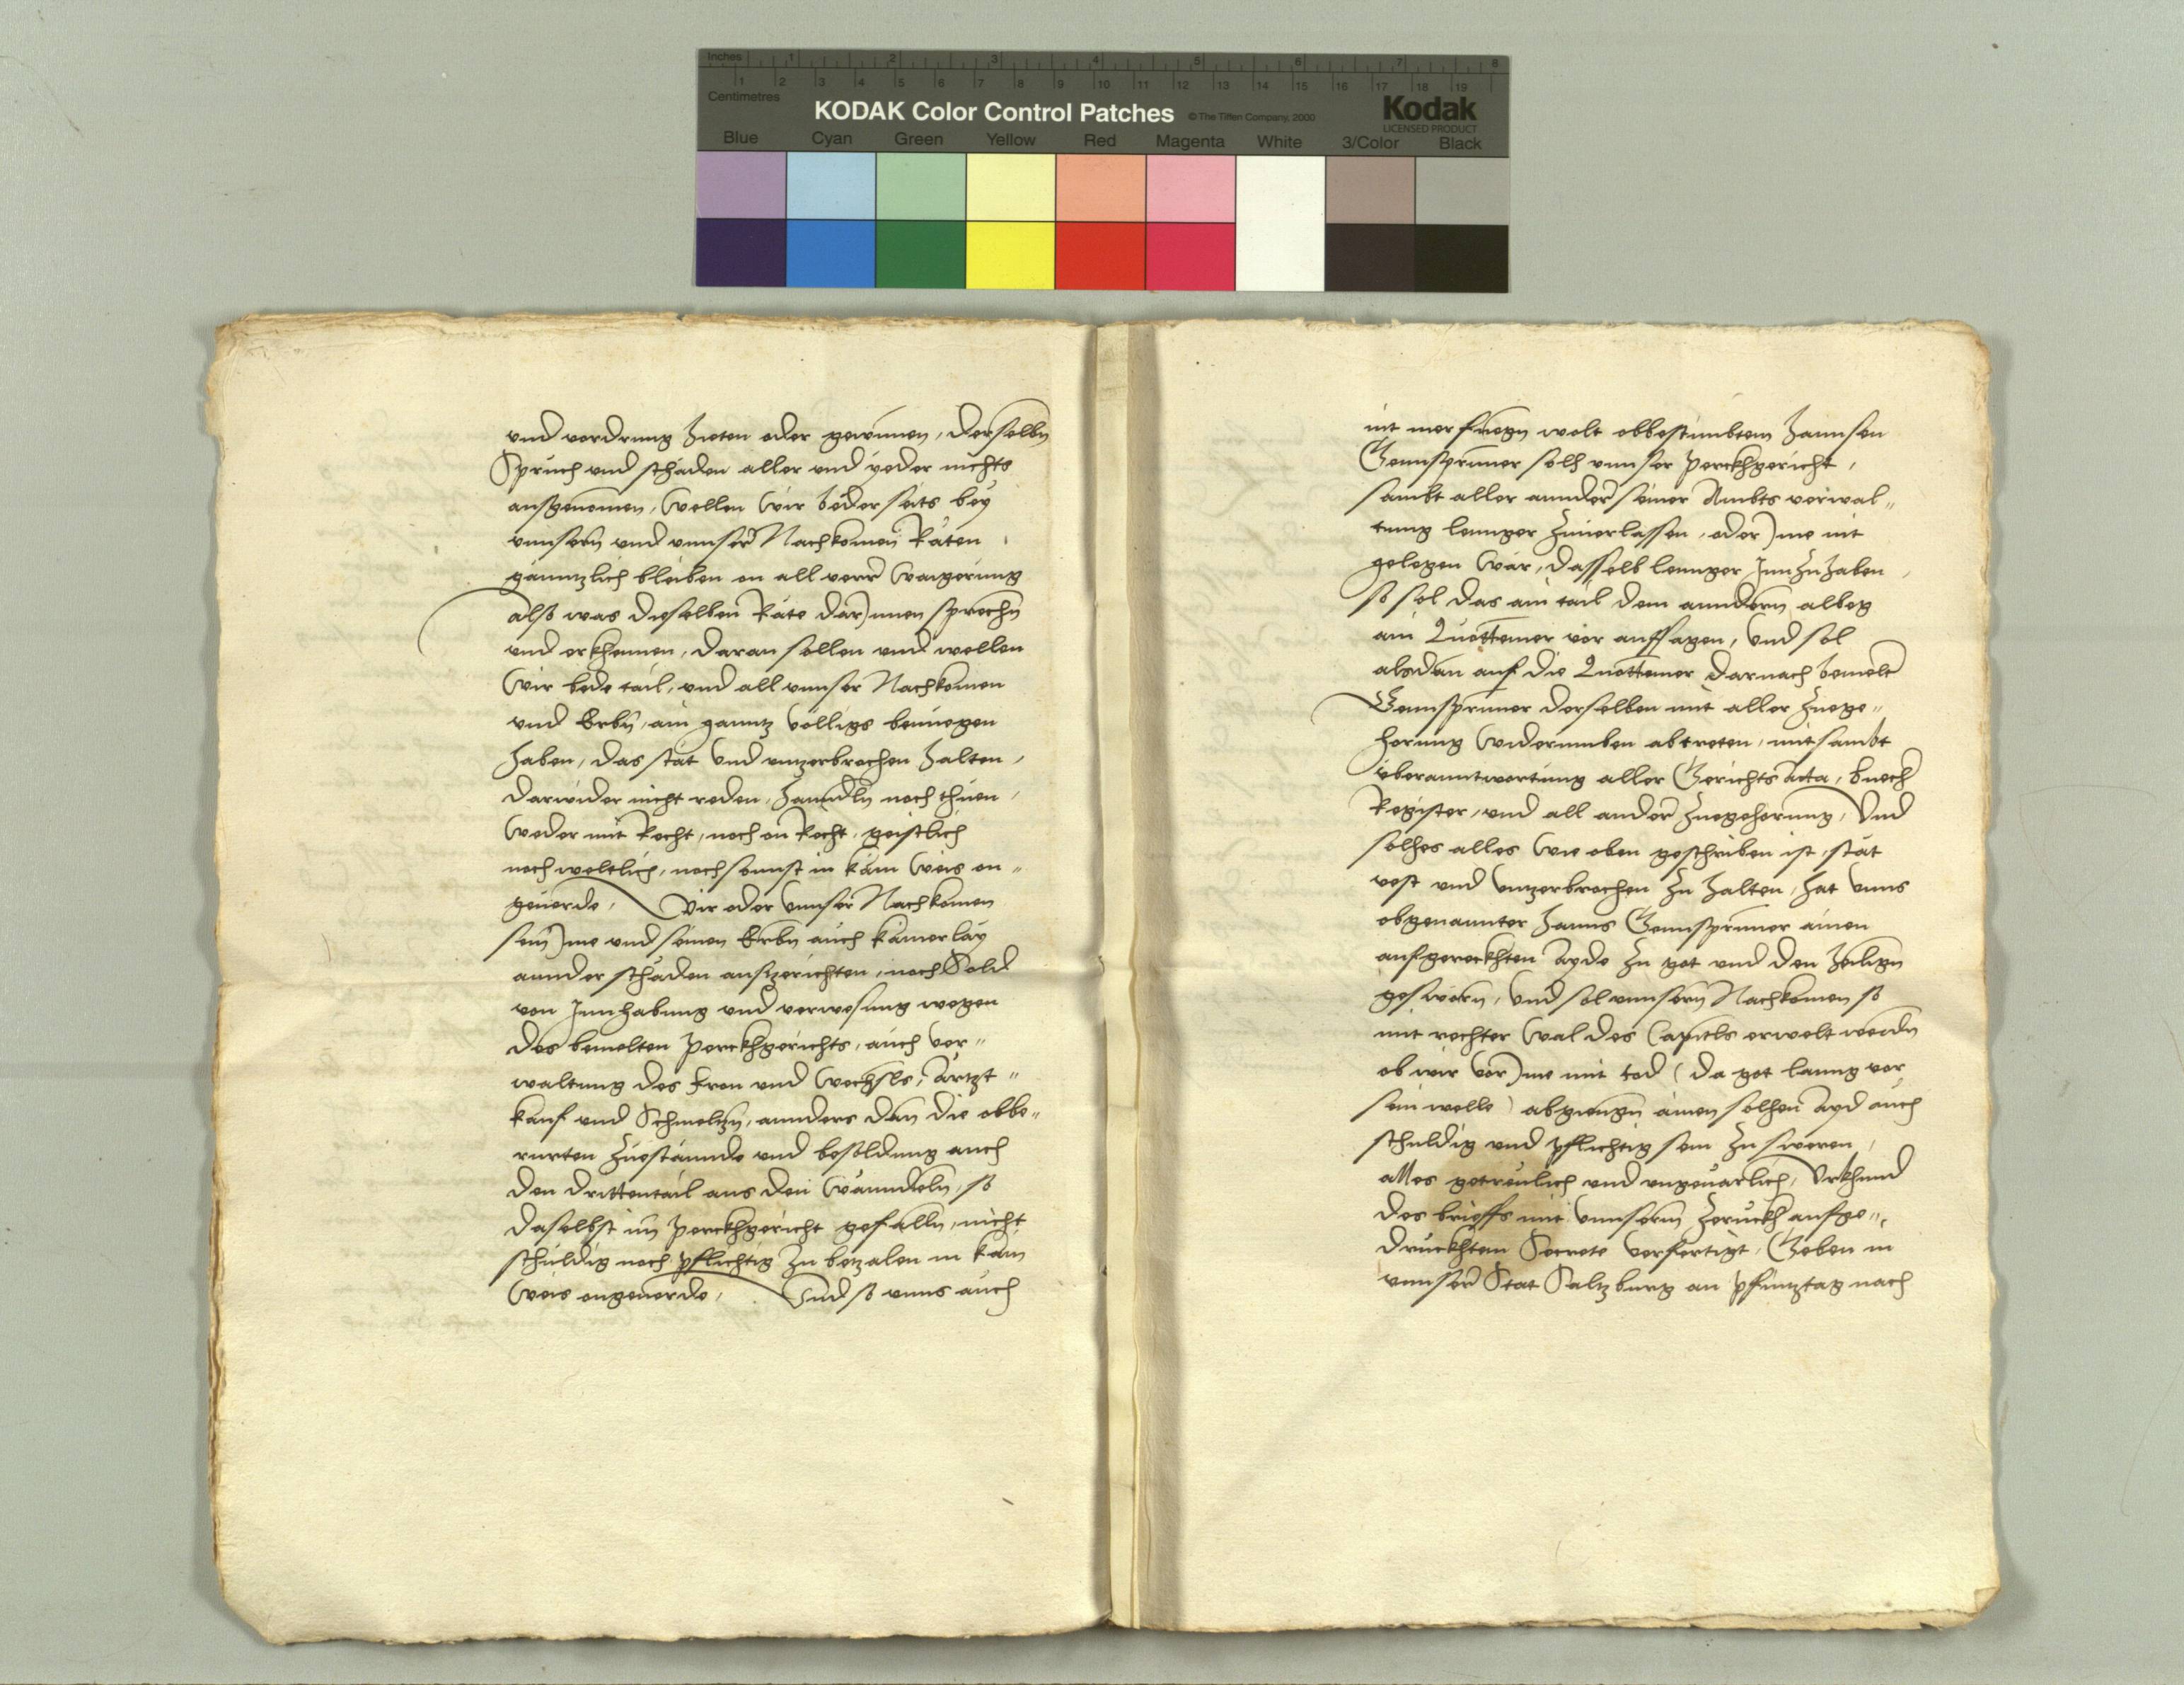 Inches 1 2 3 4 5 6 7 8
1 2 3 4 5 6 7 8 9 10 11 12 13 14 15 16 17 18 19
Centimetres
KODAK Color Control Patches © The Tiffen Company, 2000 Kodak
LICENSED PRODUCT
Blue Cyan Green Yellow Red Magenta White 3/Color Black
und vordrung heten oder gewinnen, derselbn
Spruch und schäden aller und yeder nichts
ausgenomen, wellen wir beder seits bey
unnsern und unnser Nachkomen Räten
gänntzlich bleiben on all verr waigerung
also was dieselben Räte darInnen sprechn
und erkhennen, daran sollen und wellen
wir bede tail, und all unnser Nachkomen
und Erbn, ain ganntz völligs benüegen
haben, das stät und unzerbrochen halten,
darwider nicht reden, hanndln noch thuen,
weder mit Recht, noch on Recht, geistlich
noch weltlich, noch sunst in kain weis on„
geuerde, Wir oder unnser Nachkomen
sein Ime und seinen Erbn auch kainerlay
annder schäden auszerichten, noch Sold
von Innhabung und verwesung wegen
des bemelten Perckhgerichts, auch ver„
waltung des Fron und Wechsls, Ärtzt„
kauf und Schmeltzn, annders dan die obbe„
rurten Zuestännde und besoldung auch
den drittentail aus den wänndeln, so
daselbst im Perckhgericht gefalln, nicht
schuldig noch pflichtig zu betzalen in kain
weis ongeuerde, Und so unns auch
nit mer fuegn wolt obbestimbtem Hannsen
Gennsprunner solh unnser Perckhgericht,
sambt aller annder seiner Ambts verwal„
tung lennger zuuerlassen, oder Ime nit
gelegen wär, dasselb lennger Innzuhaben,
so sol das ain tail dem anndern albeg
ain Quottemer vor aufsagen, Und sol
alsdan auf die Quottemer darnach bemelter
Gennsprunner derselben mit aller Zuege„
horung widerumben abtreten, mitsambt
überanntwortung aller Gerichts acta, buech
Register, und all ander Zuegehorung, Und
solhes alles wie oben geschriben ist, stät
vest und unzerbrochen zu halten, hat unns
obgenannter Hanns Gennsprunner ainen
aufgereckhten ayde zu got und den heiligen
gesworn, Und sol unnsern Nachkomen so
mit rechter wal des Capitls erwelt werdn
ob wir vor Ime mit tod (da got lanng vor
sein welle) abgienngn ainen solhen ayd auch
schuldig und pflichtig sein zu sweren,
alles getreulich und ungeuärlich, Urkhund
des brieffs mit unnserm zeruckh aufge„
druckhtem Secrete verfertigt, Geben in
unnser Stat Saltzburg an Pfintztag nach